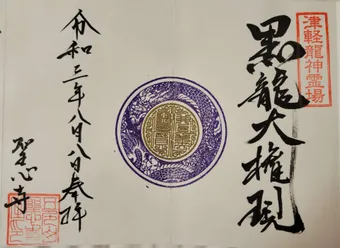 津軽龍神霊場
黒龍大権現
令和三年八月八日奉拝
聖心寺